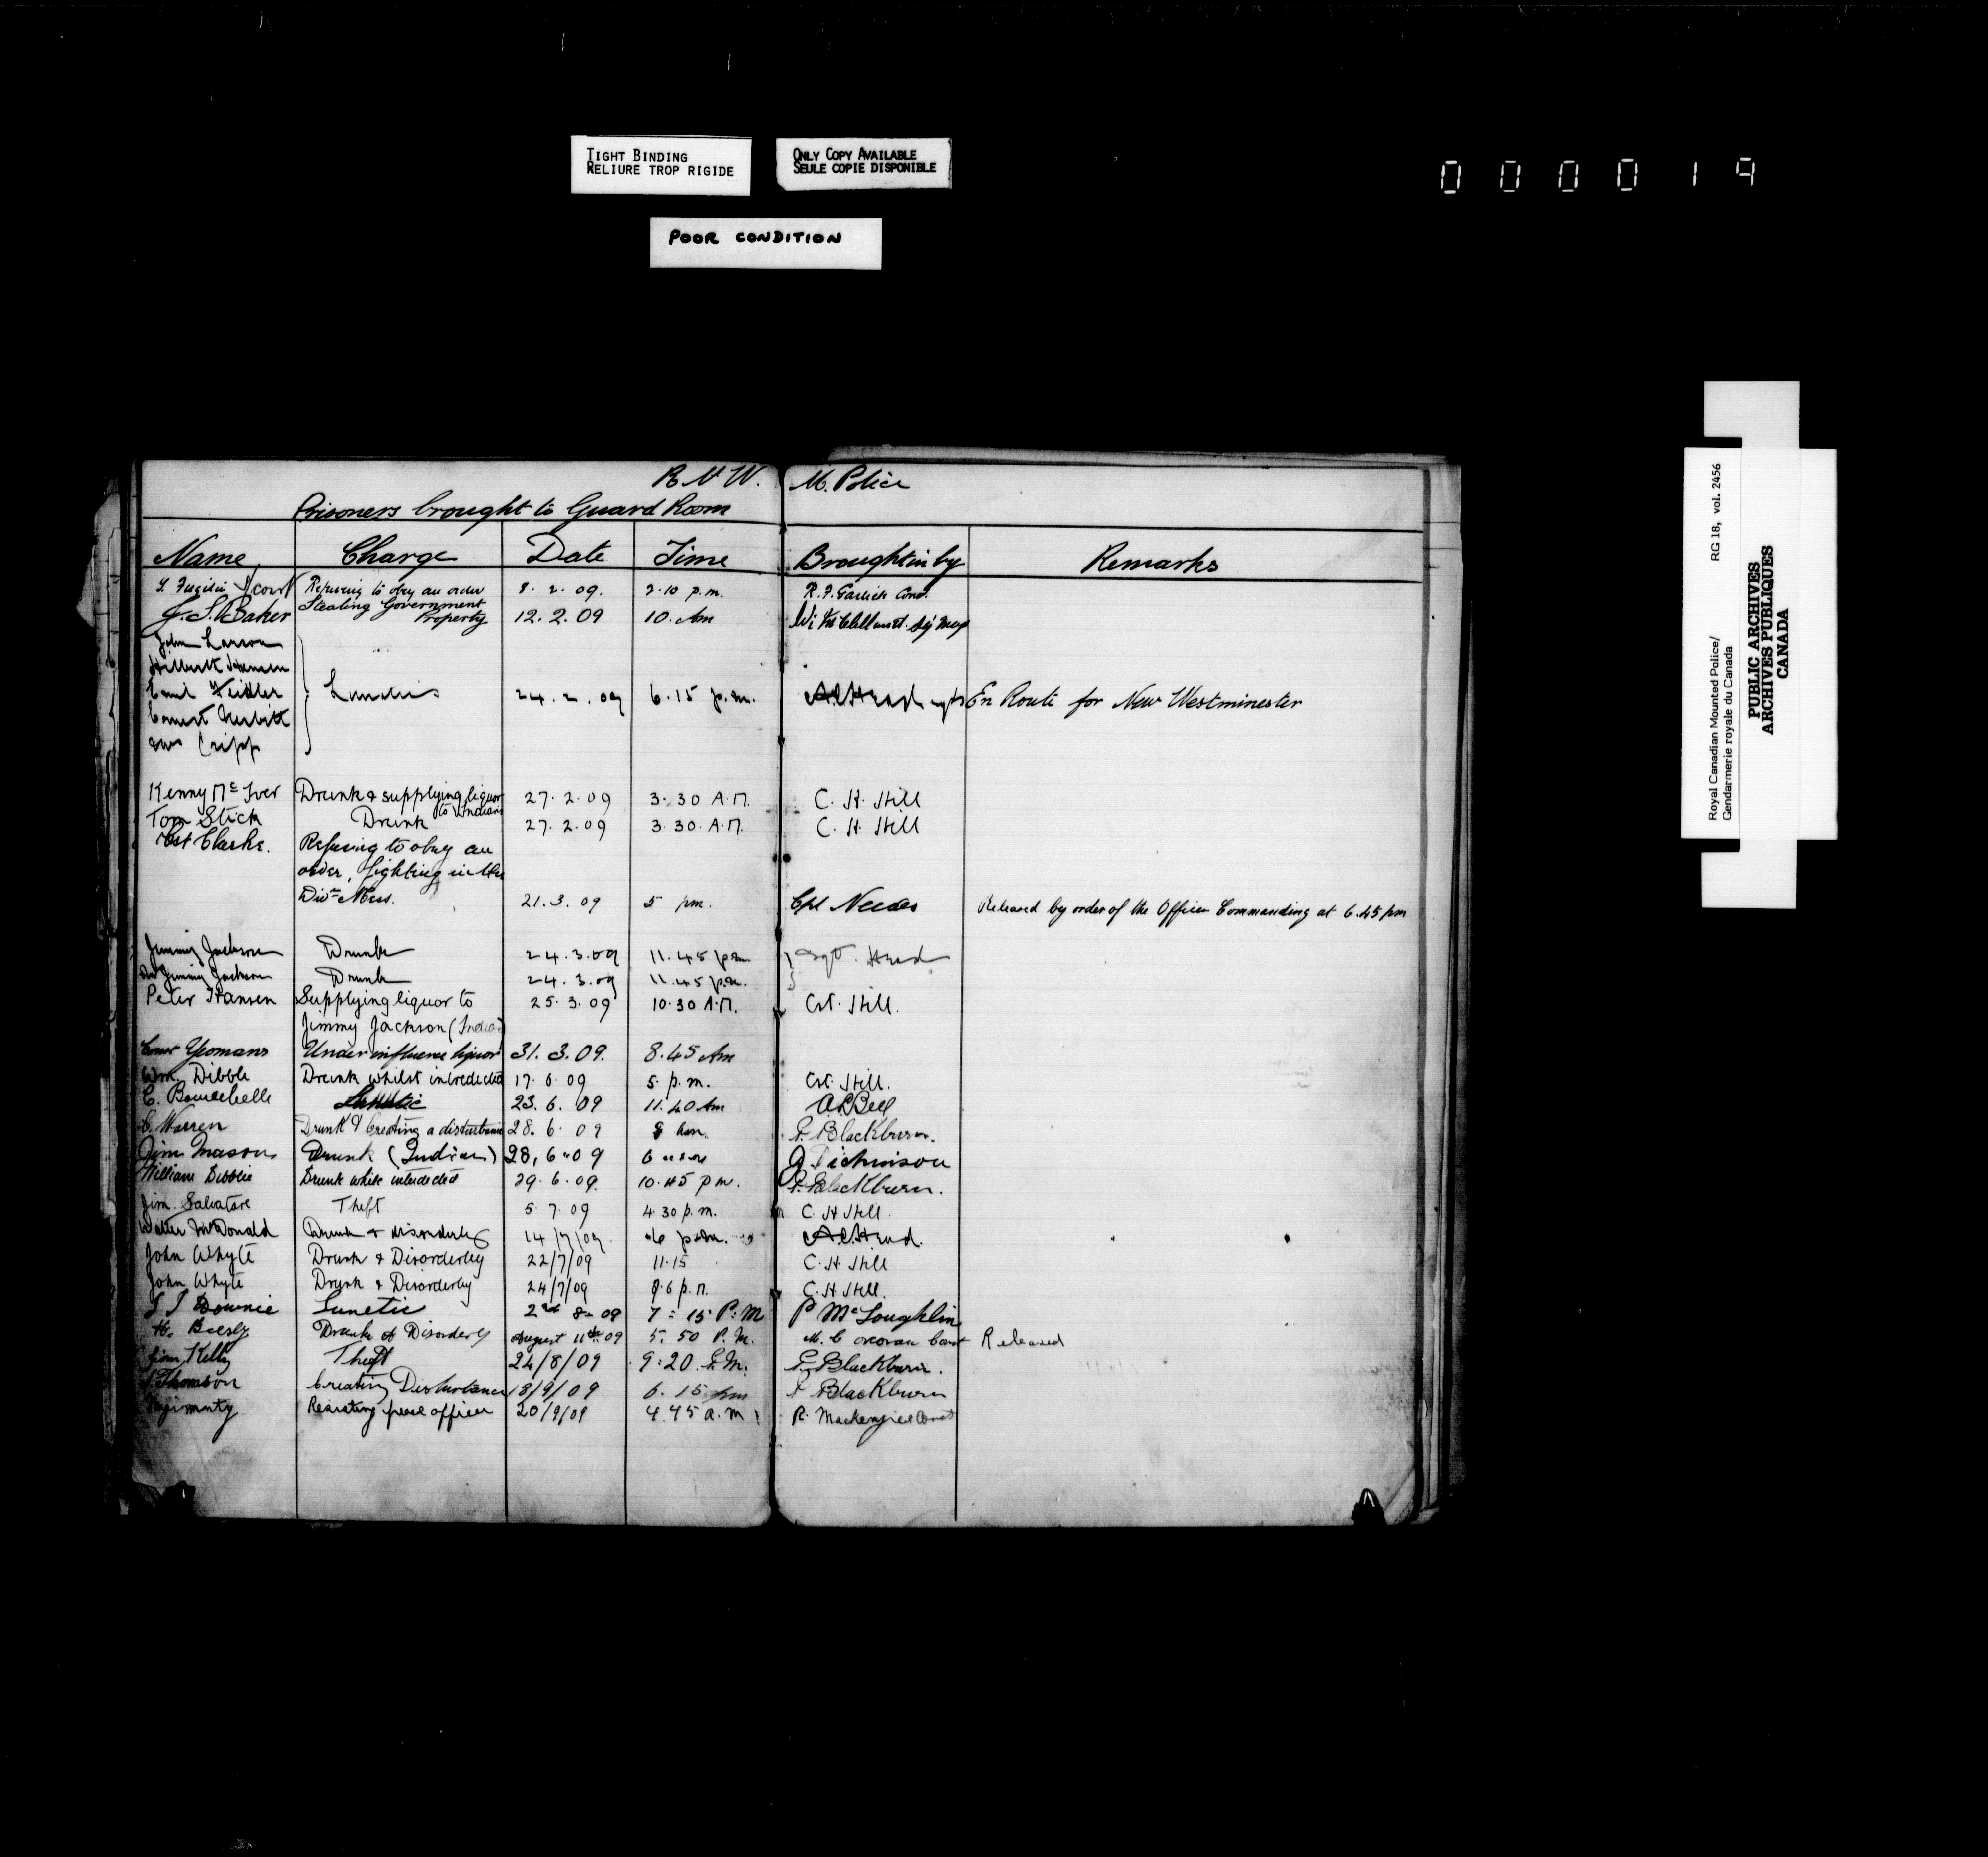 TIGHT BINDING
RELIURE TROP RIGIDE
ONLY COPY AVAILABLE
SEULE COPIE DISPONIBLE
POOR CONDITION
000019
R N W. M. Police
Prisoners brought to Guard Room
Name Charge Date Time Brought in by Remarks
Refusing to obey an order 8. 2. 09. 2.10 p.m. R. F. Garlick Const.
J. S. Baker Stealing Government Property 12. 2. 09 10. Am
John Larson
Emil
Ernest Nesbitt
Cripp
24. 2. 09 6.15 p.m. En Route for New Westminester
Kenny Mc Iver Drunk & supplying liquor to Indians 27. 2. 09 3. 30 A.M. C. H. Hill
Tom Stick Drunk 27. 2. 09 3. 30. A.M. C. H. Hill
Cst Clarke. Refusing to obey an
order, fighting in the
Divn Mess. 21. 3. 09 5 pm. Cpl Released by order of the Officer Commanding at 6.45 pm
Jimmy Jackson Drunk 24. 3. 09 11. 45 p.m. Sgt. Head
Jimmy Jackson Drunk 24. 3. 09 11. 45 p.m.
Peter Hansen Supplying liquor to 25. 3. 09 10. 30 A.M. Cst. Hill.
Jimmy Jackson (Indian)
Const Yeomans Under influence liquor 31. 3. 09. 8. 45 Am
Wm. Dibble Drunk whilst interdicted 17. 6. 09 5. p. m. Cst. Hill.
C. Lunatic 23. 6. 09 11. 40 Am
C. Warren Drunk & Creating a disturbance 28. 6. 09 Blackburn.
Jim Mason Drunk (Indian) 28, 6 " 09 6
William Dibble Drunk while interdicted 29. 6. 09. 10. 45 p m. Blackburn.
Jim. Salvatore Theft 5. 7. 09 4. 30 p. m. C. H Hill.
Walter McDonald Drunk & disorderly 14/7/09. 6 p.m. Head.
John Whyte Drunk & Disorderly 22/7/09 11.15 C. H. Hill
John Whyte Drunk & Disorderly 24/7/09 C. H. Hill.
Downie Lunetic 2nd 8= 09 7 = 15 P. M P McLoughlin
H. Beesly Drunk & Disorderly August 11th 09 5. 50 P. M. Const Released
Jim Kelly Theft 24/8/09 9:20 P.M. Blackburn.
Thomson Creating Disturbance 18/9/09 6. 15 pm Blackburn
Resisting peace officer 20/9/09 4.45 a. m. R. Mackenzie Const
Royal Canadian Mounted Police/ RG 18, vol. 2456
Gendarmerie royale du Canada
PUBLIC ARCHIVES
ARCHIVES PUBLIQUES
CANADA